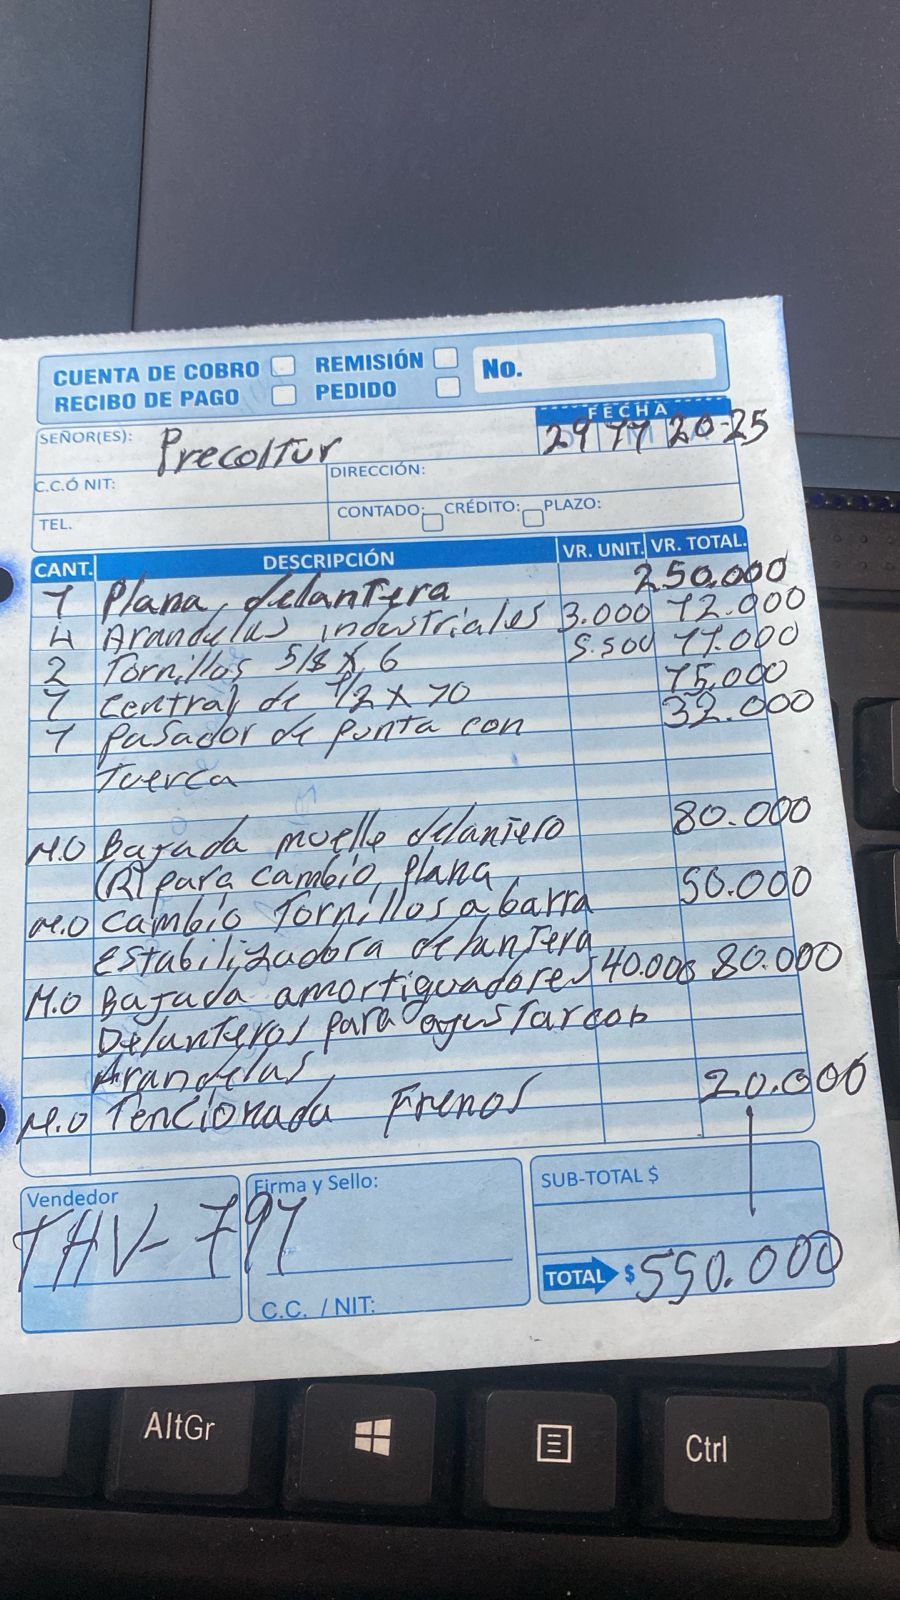 CUENTA DE COBRO REMISIÓN No.
RECIBO DE PAGO PEDIDO
FECHA
SEÑOR(ES): Precoltur 29 11 20-25
C.C.Ó NIT: DIRECCIÓN:
TEL. CONTADO: CRÉDITO: PLAZO:
CANT. DESCRIPCIÓN VR. UNIT. VR. TOTAL.
1 Plana delantera 250.000
4 Arandelas industriales 3.000 12.000
2 Tornillos 5/8 x 6 5.500 11.000
1 Central de 1/2 x 10 15.000
1 Pasador de punta con 32.000
Tuerca
M.O Bajada muelle delantero 80.000
(R) para cambio plana
M.O Cambio Tornillos a barra 50.000
estabilizadora delantera
M.O Bajada amortiguadores 40.000 80.000
Delanteros para ajustar con
Arandelas
M.O Tencionada Frenos 20.000
Vendedor Firma y Sello: SUB-TOTAL $
THV-791
TOTAL $ 550.000
C.C. / NIT:
AltGr Ctrl